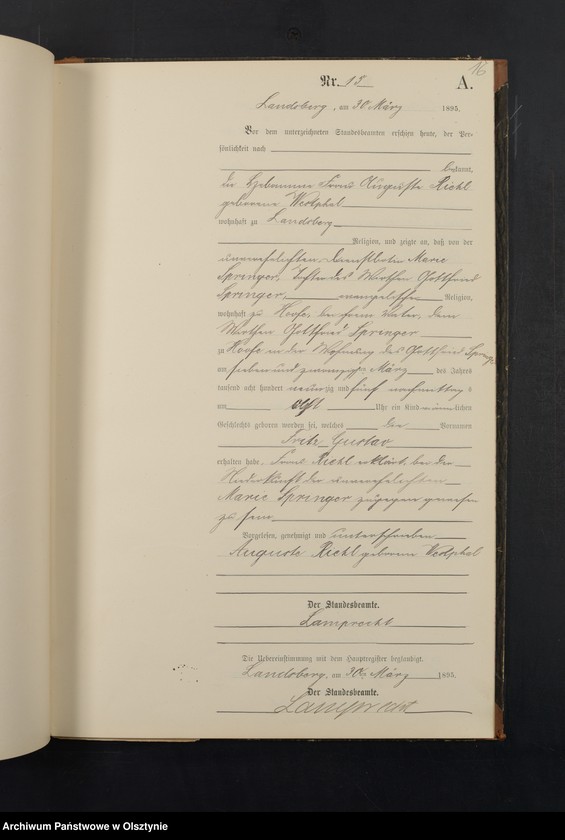 16
Nr. 13 A.
Landsberg, am 30. März 1895.
Vor dem unterzeichneten Standesbeamten erschien heute, der Per-
sönlichkeit nach
bekannt,
die Hebamme Frau Auguste Riehl
geborene Westphal
wohnhaft zu Landsberg
Religion, und zeigte an, daß von der
unverehelichten Dienstbotin Marie
Springer, Tochter des Wirthen Gottfried
Springer, evangelischer Religion,
wohnhaft zu Hoofe, bei ihrem Vater, dem
Wirthen Gottfried Springer
zu Hoofe in der Wohnung des Gottfried Springer
am sieben und zwanzigsten März des Jahres
tausend acht hundert neunzig und fünf nachmittags
um elf Uhr ein Kind männlichen
Geschlechts geboren worden sei, welches die Vornamen
Fritz Gustav
erhalten habe. Frau Riehl erklärt, bei der
Niederkunft der unverehelichten
Marie Springer zugegen gewesen
zu sein
Vorgelesen, genehmigt und unterschrieben
Auguste Riehl geborene Westphal
Der Standesbeamte.
Lamprecht
Die Uebereinstimmung mit dem Hauptregister beglaubigt.
Landsberg, am 30. März 1895.
Der Standesbeamte.
Lamprecht
Archiwum Państwowe w Olsztynie